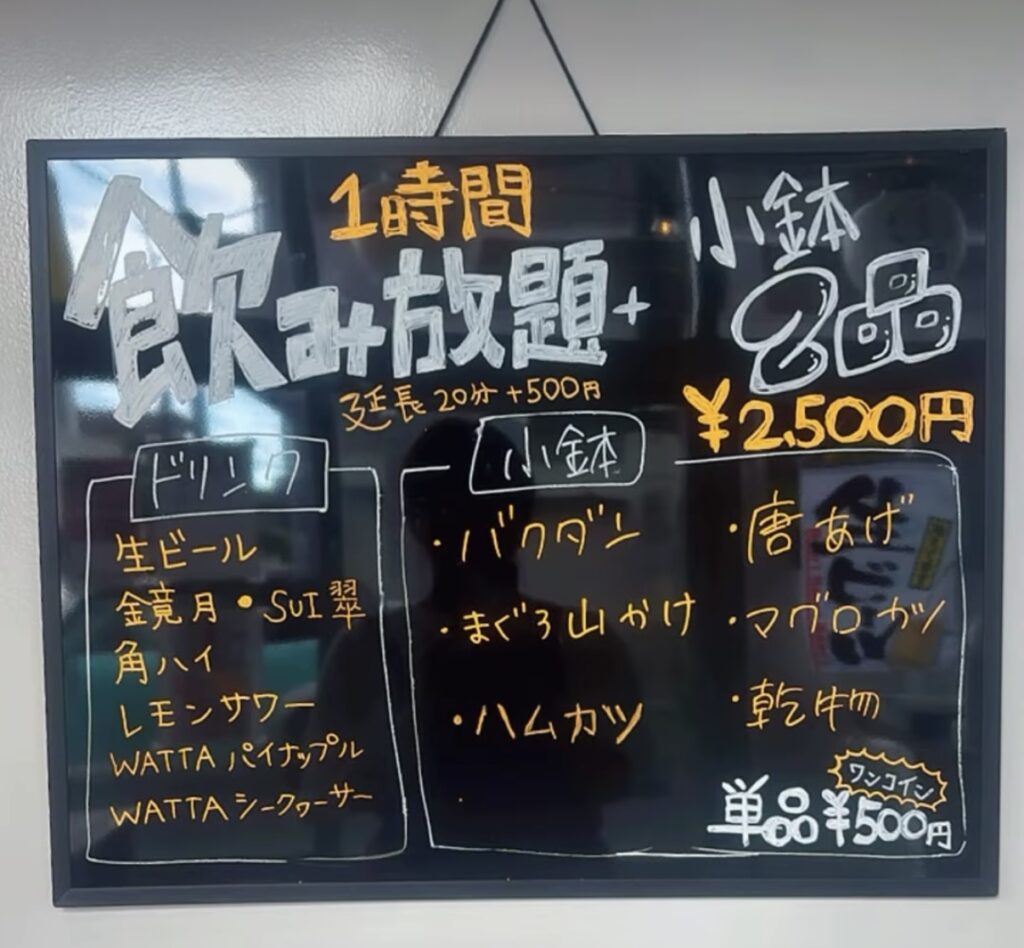 1時間
飲み放題+
延長 20分+500円
小鉢
2品
¥2,500円
ドリンク
生ビール
金鏡月・SUI翠
角ハイ
レモンサワー
WATTA パイナップル
WATTA シークヮーサー
小鉢
・バクダン
・まぐろ山かけ
・ハムカツ
・唐あげ
・マグロカツ
・乾物
ワンコイン
単品¥500円